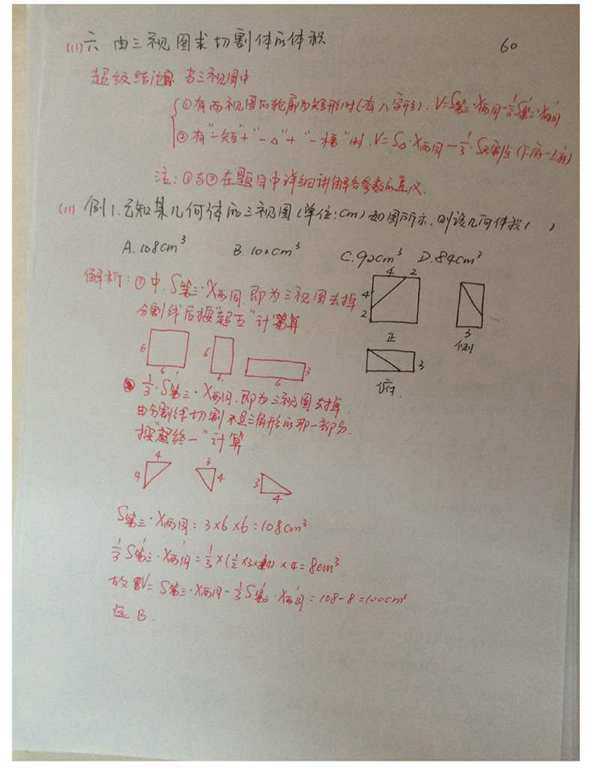 (11) 六 由三视图求切割体的体积 60
超级结论 当三视图中
①有两视图的轮廓为矩形时(有八字形), V=S第三·X两同-⅓S'第三·X'两同
②有"一矩"+"一△"+"一梯"时, V=S△·X两同-⅓·S
注:①与②在题目中详细讲解各参数的意义.
(11) 例1.已知某几何体的三视图(单位:cm)如图所示,则该几何体积( )
A.108cm³ B.100cm³ C.92cm³ D.84cm³
解析:①中,S第三·X两同,即为三视图去掉
分割线后按"超五"计算
4 2
4
2
正
3
侧
3
俯
6
6
6
6
3
6
⅓·S'第三·X'两同,即为三视图去掉
由分割线切割不是三角形的那一部分
按"超终一"计算
4
4
3
4
3
4
S第三·X两同=3×6×6=108cm³
⅓S'第三·X'两同=⅓×(½×3×4)×4=8cm³
故V=S第三·X两同-⅓S'第三·X'两同=108-8=100cm³
选B.